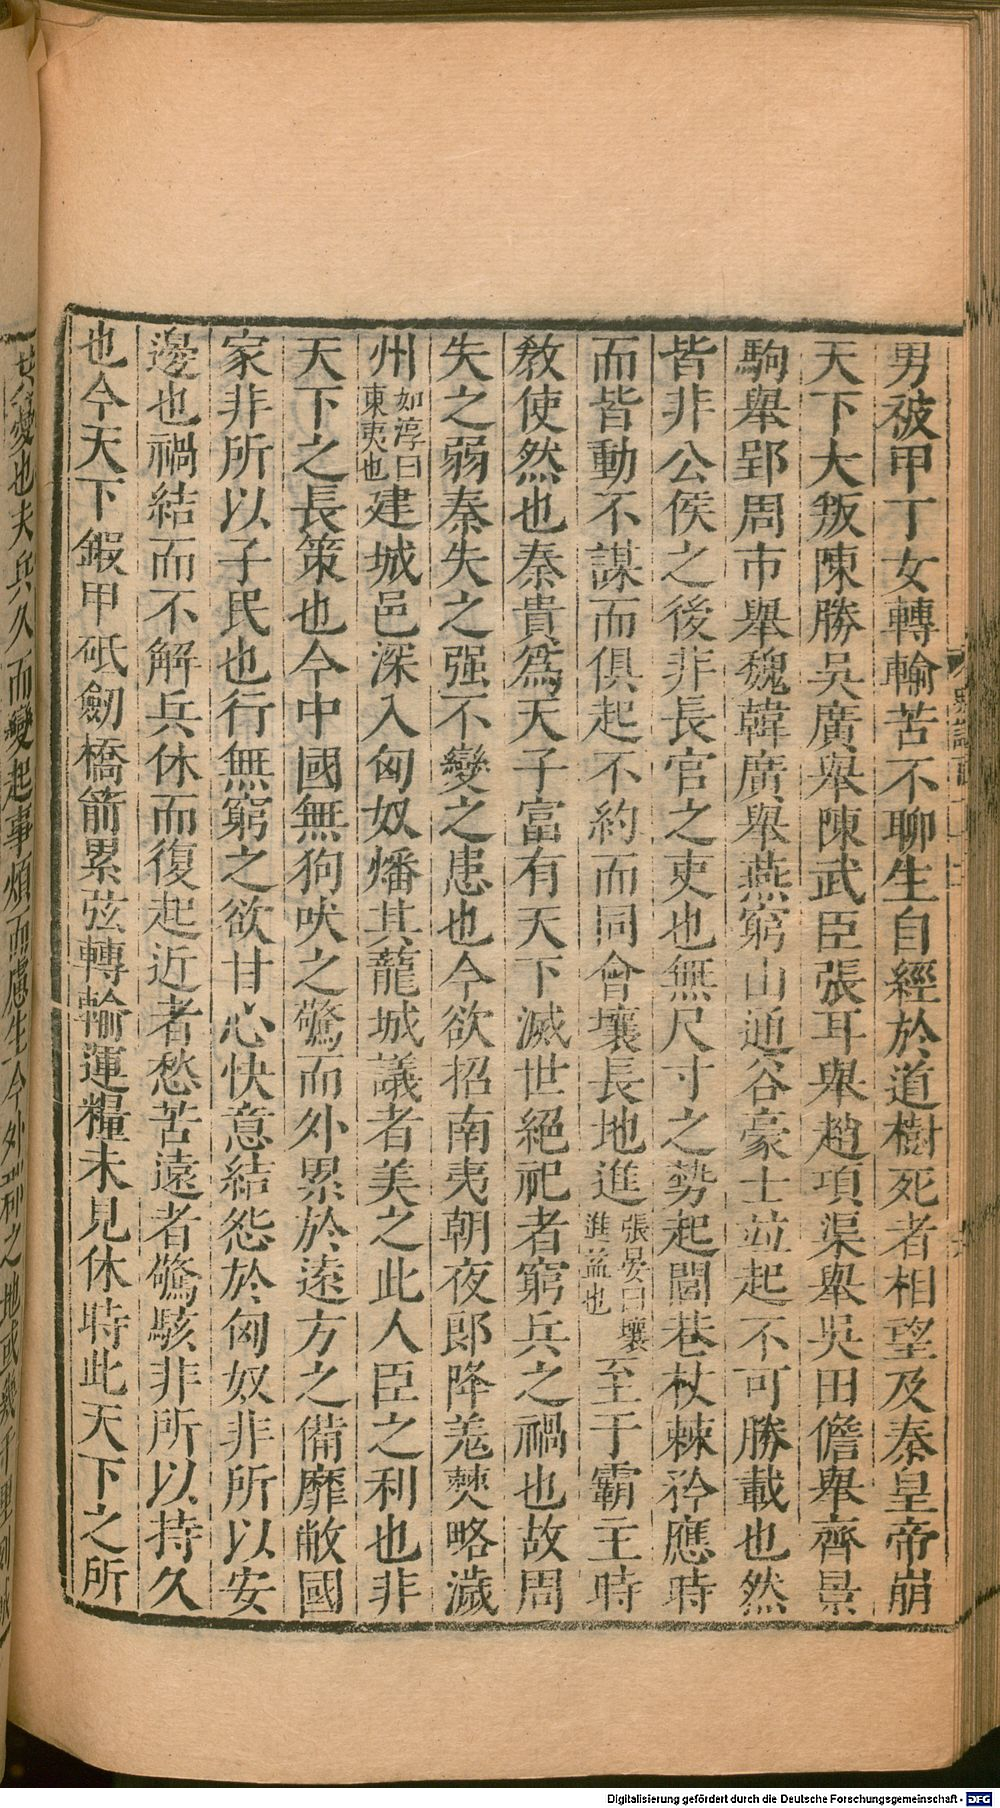 男被甲丁女轉輸苦不聊生自經於道樹死者相望及秦皇帝崩
天下大叛陳勝吳廣舉陳武臣張耳舉趙項梁舉吳田儋舉齊景
駒舉郢周市舉魏韓廣舉燕窮山通谷豪士並起不可勝載也然
皆非公侯之後非長官之吏也無尺寸之勢起閭巷杖棘矜應時
而皆動不謀而俱起不約而同會壤長地進張晏曰壤進益也至于霸王時
教使然也秦貴爲天子富有天下滅世絕祀者窮兵之禍也故周
失之弱秦失之强不變之患也今欲招南夷朝夜郎降羌僰略濊
州如淳曰東夷也建城邑深入匈奴燔其蘢城議者美之此人臣之利也非
天下之長策也今中國無狗吠之驚而外累於遠方之備靡敝國
家非所以子民也行無窮之欲甘心快意結怨於匈奴非所以安
邊也禍結而不解兵休而復起近者愁苦遠者驚駭非所以持久
也今天下鍛甲砥劒橋箭累弦轉輸運糧未見休時此天下之所
共憂也夫兵久而變起事煩而慮生今外郡之地或幾千里列城
Digitalisierung gefördert durch die Deutsche Forschungsgemeinschaft - DFG